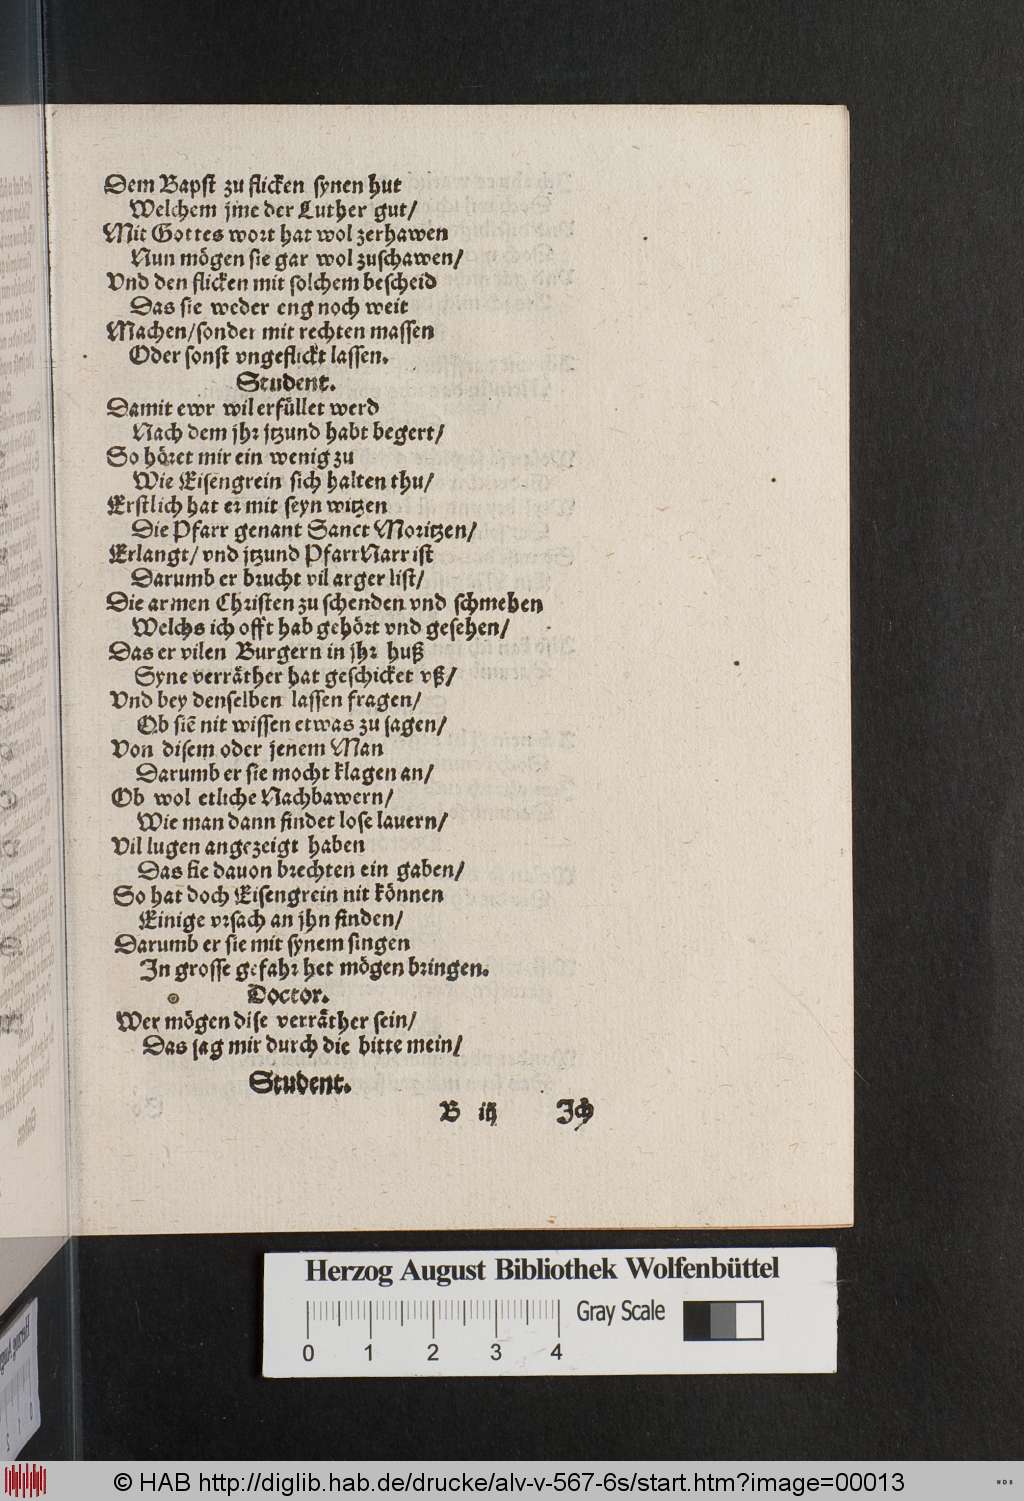 Dem Bapst zu flicken synen hut
Welchem jme der Luther gut/
Mit Gottes wort hat wol zerhawen
Nun mögen sie gar wol zuschawen/
Vnd den flicken mit solchem bescheid
Das sie weder eng noch weit
Machen/sonder mit rechten massen
Oder sonst vngeflickt lassen.
Student.
Damit ewr wil erfüllet werd
Nach dem jhr jtzund habt begert/
So höret mir ein wenig zu
Wie Eisengrein sich halten thu/
Erstlich hat er mit seyn witzen
Die Pfarr genant Sanct Moritzen/
Erlangt/ vnd jtzund PfarrNarr ist
Darumb er brucht vil arger list/
Die armen Christen zu schenden vnd schmehen
Welchs ich offt hab gehört vnd gesehen/
Das er vilen Burgern in jhr huß
Syne verräther hat geschicket vß/
Vnd bey denselben lassen fragen/
Ob siē nit wissen etwas zu sagen/
Von disem oder jenem Man
Darumb er sie mocht klagen an/
Ob wol etliche Nachbawern/
Wie man dann findet lose lauern/
Vil lugen angezeigt haben
Das sie dauon brechten ein gaben/
So hat doch Eisengrein nit können
Einige vrsach an jhn finden/
Darumb er sie mit synem singen
In grosse gefahr het mögen bringen.
Doctor.
Wer mögen dise verräther sein/
Das sag mir durch die bitte mein/
Student.
B iij Ich
Herzog August Bibliothek Wolfenbüttel
Gray Scale
0 1 2 3 4
© HAB http://diglib.hab.de/drucke/alv-v-567-6s/start.htm?image=00013